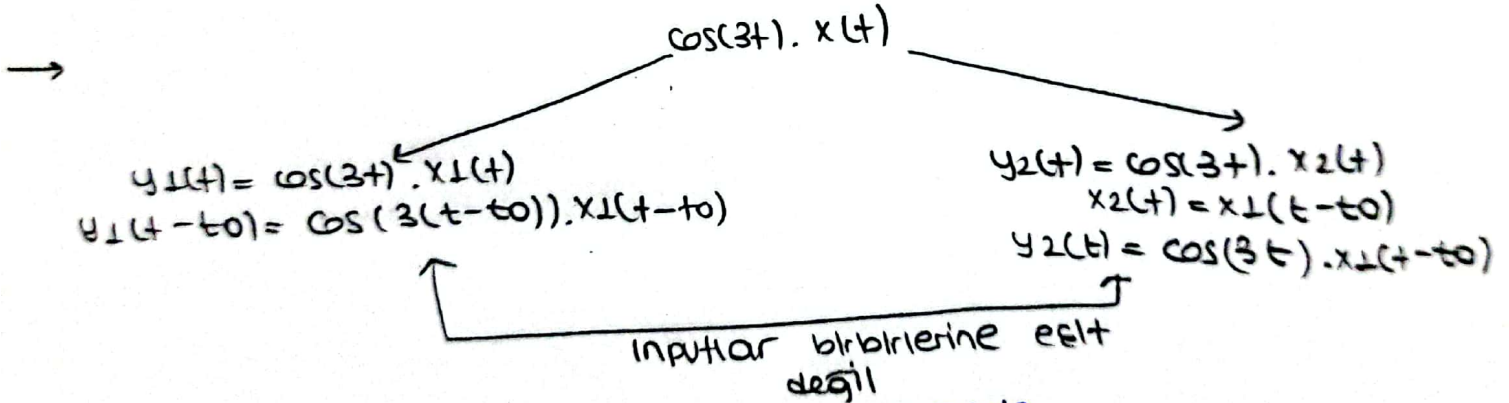 → cos(3t). x(t)
y1(t) = cos(3t).x1(t)
y1(t-t0) = cos(3(t-t0)).x1(t-t0)
y2(t) = cos(3t). x2(t)
x2(t) = x1(t-t0)
y2(t) = cos(3t).x1(t-t0)
inputlar birbirlerine eşit
değil